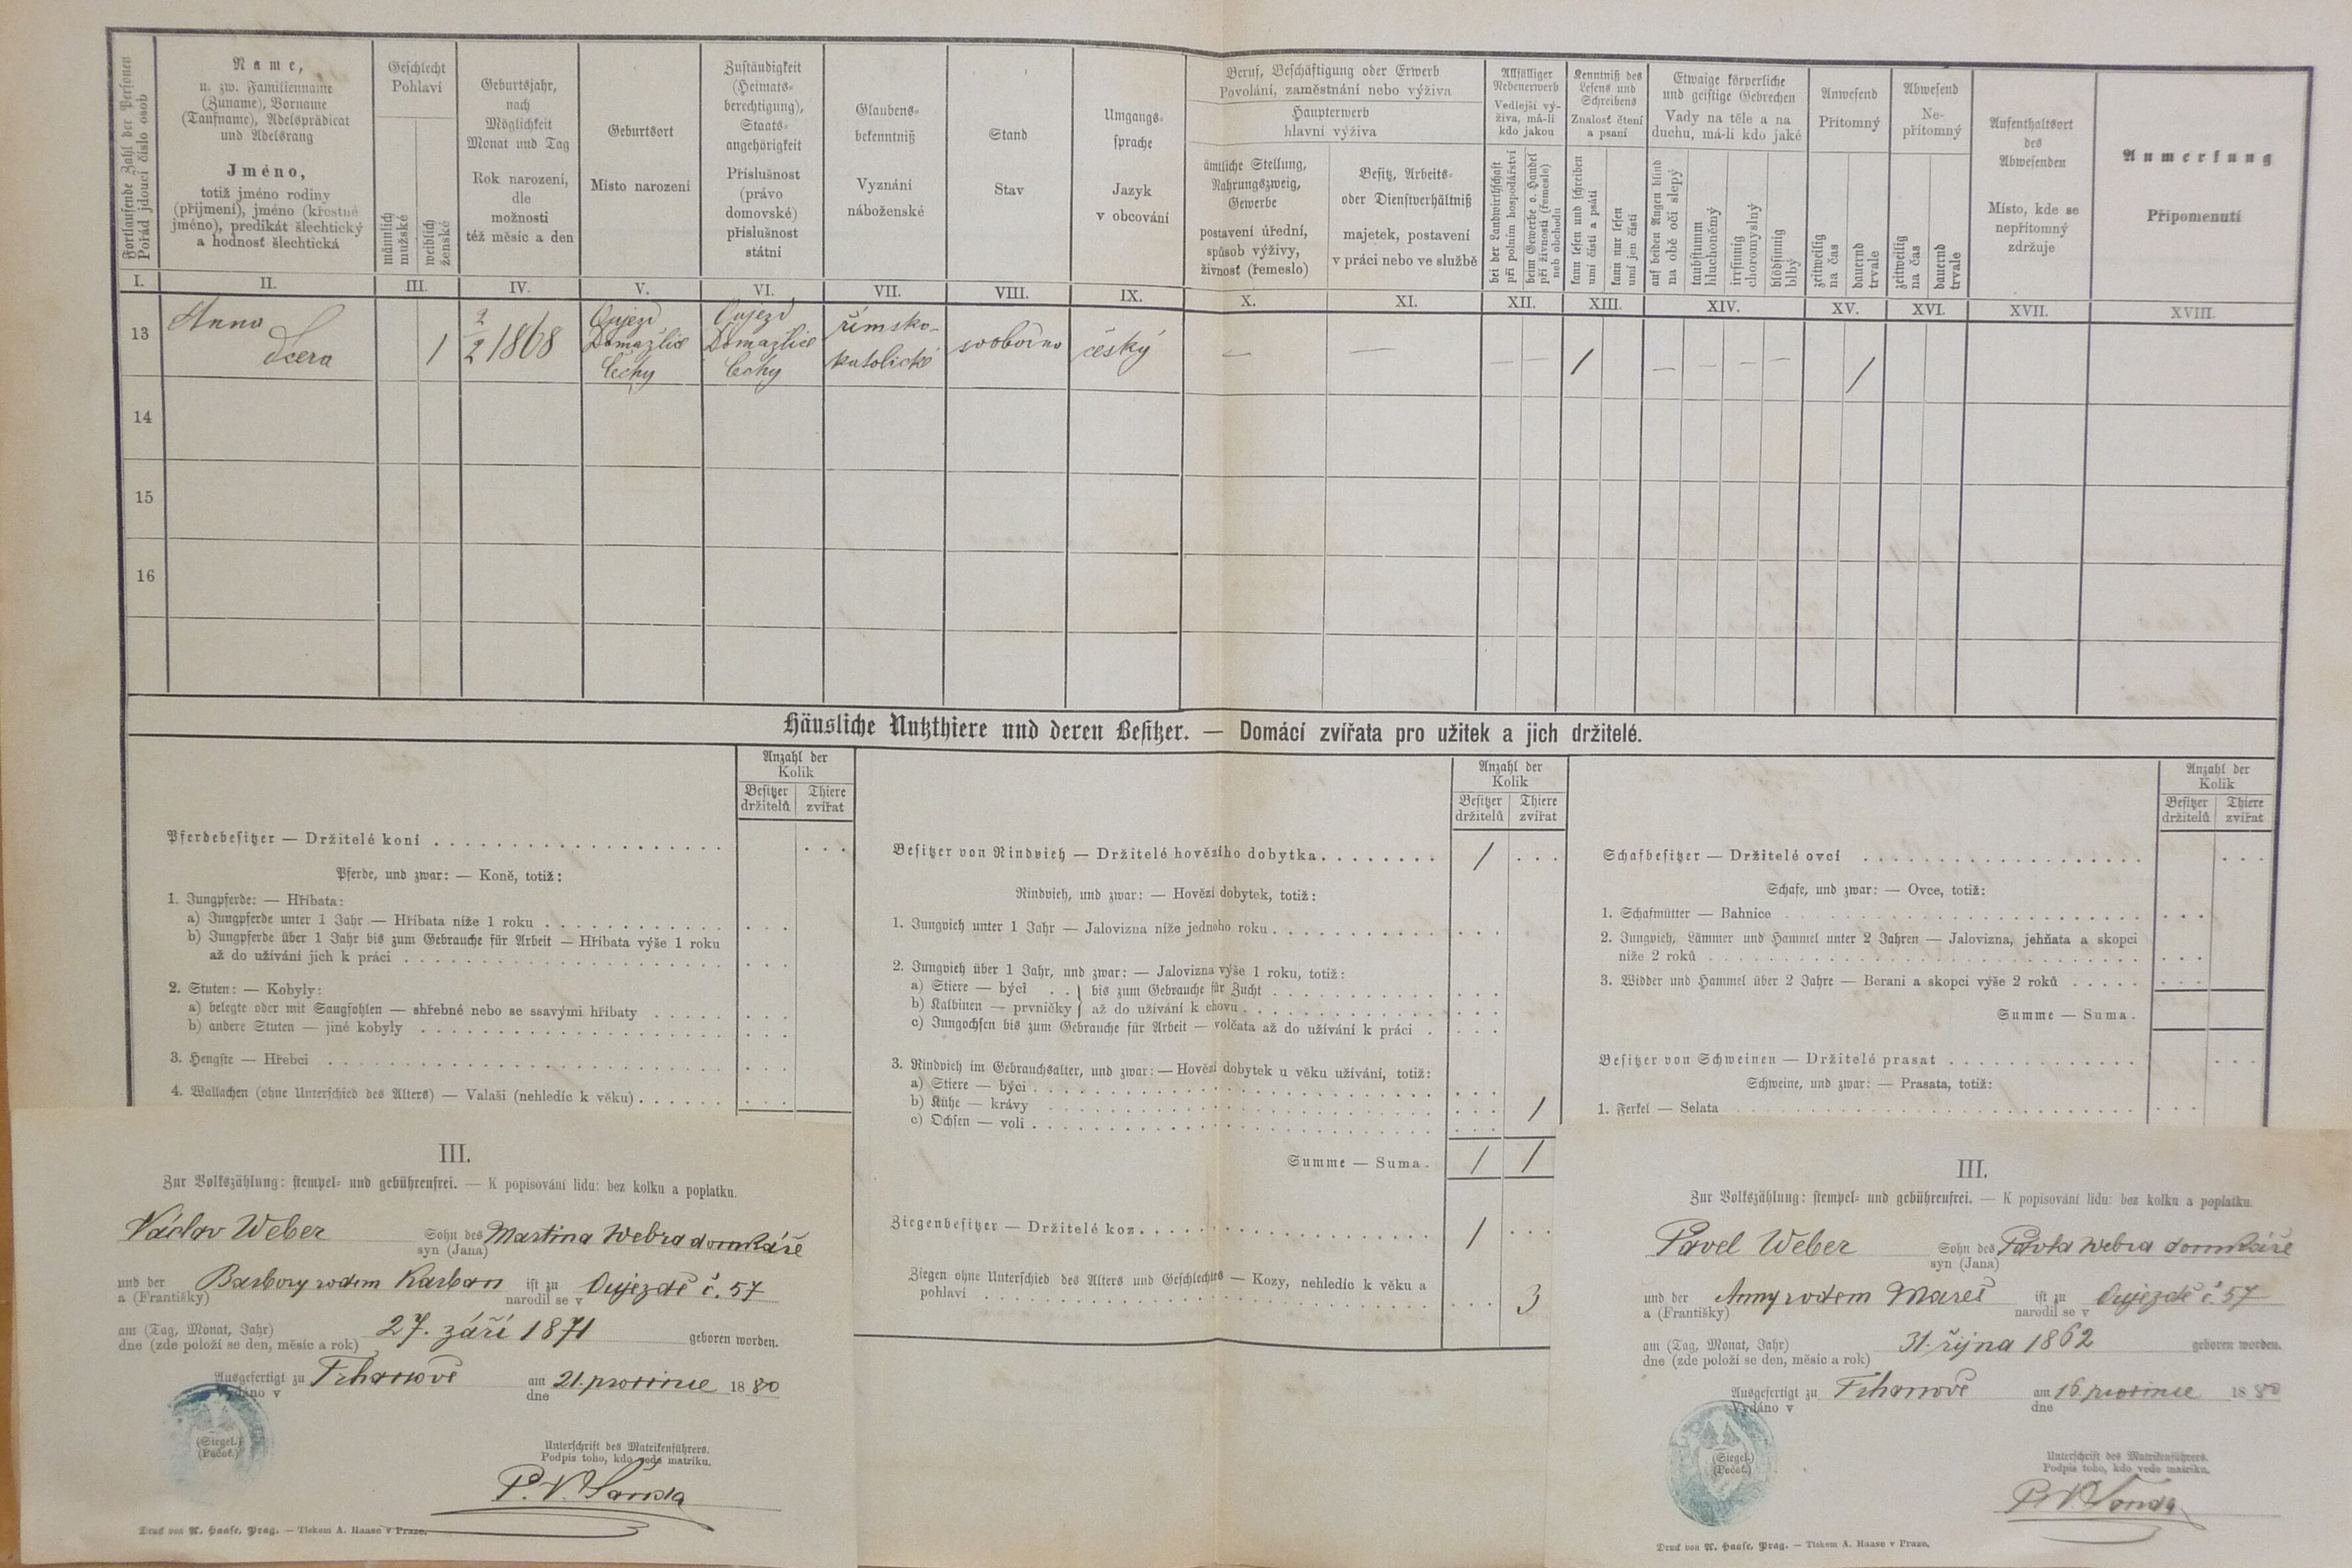 Fortlaufende Zahl der Personen
Pořád jdoucí číslo osob
Name,
u. zw. Familienname
(Zuname), Vorname
(Taufname), Adelsprädicat
und Adelsrang
Jméno,
totiž jméno rodiny
(příjmení), jméno (křestné
jméno), predikát šlechtický
a hodnosť šlechtická
Geschlecht
Pohlaví
männlich
mužské
weiblich
ženské
Geburtsjahr,
nach
Möglichkeit
Monat und Tag
Rok narození,
dle
možnosti
též měsíc a den
Geburtsort
Místo narození
Zuständigkeit
(Heimats-
berechtigung),
Staats-
angehörigkeit
Příslušnost
(právo
domovské)
příslušnost
státní
Glaubens-
bekenntniß
Vyznání
náboženské
Stand
Stav
Umgangs-
sprache
Jazyk
v obcování
Beruf, Beschäftigung oder Erwerb
Povolání, zaměstnání nebo výživa
Haupterwerb
hlavní výživa
ämtliche Stellung,
Nahrungszweig,
Gewerbe
postavení úřední,
spůsob výživy,
živnosť (řemeslo)
Besitz, Arbeits-
oder Dienstverhältniß
majetek, postavení
v práci nebo ve službě
Allfälliger
Nebenerwerb
Vedlejší vý-
živa, má-li
kdo jakou
bei der Landwirthschaft
při polním hospodářství
beim Gewerbe o. Handel
při živnosti (řemesle)
neb obchodu
Kenntniß des
Lesens und
Schreibens
Znalosť čtení
a psaní
kann lesen und schreiben
umí čísti a psáti
kann nur lesen
umí jen čísti
Etwaige körperliche
und geistige Gebrechen
Vady na těle a na
duchu, má-li kdo jaké
auf beiden Augen blind
na obě oči slepý
taubstumm
hluchoněmý
irrsinnig
choromyslný
blödsinnig
blbý
Anwesend
Přítomný
zeitweilig
na čas
dauernd
trvale
Abwesend
Ne-
přítomný
zeitweilig
na čas
dauernd
trvale
Aufenthaltsort
des
Abwesenden
Místo, kde se
nepřítomný
zdržuje
Anmerkung
Připomenutí
I. II. III. IV. V. VI. VII. VIII. IX. X. XI. XII. XIII. XIV. XV. XVI. XVII. XVIII.
13
Anna
dcera
1
2
2 1868
Oujezd
Domažlice
Čechy
Oujezd
Domažlice
Čechy
římsko-
katolické
svobodna
český
— — — — 1 — — — — 1
14
15
16
Häusliche Nutzthiere und deren Besitzer. — Domácí zvířata pro užitek a jich držitelé.
Anzahl der
Kolik
Besitzer Thiere
držitelů zvířat
Pferdebesitzer — Držitelé koní
Pferde, und zwar: — Koně, totiž:
1. Jungpferde: — Hříbata:
a) Jungpferde unter 1 Jahr — Hříbata níže 1 roku
b) Jungpferde über 1 Jahr bis zum Gebrauche für Arbeit — Hříbata výše 1 roku
až do užívání jich k práci
2. Stuten: — Kobyly:
a) belegte oder mit Saugfohlen — shřebné nebo se ssavými hříbaty
b) andere Stuten — jiné kobyly
3. Hengste — Hřebci
4. Wallachen (ohne Unterschied des Alters) — Valaši (nehledíc k věku)
Anzahl der
Kolik
Besitzer Thiere
držitelů zvířat
Besitzer von Rindvieh — Držitelé hovězího dobytka 1
Rindvieh, und zwar: — Hovězí dobytek, totiž:
1. Jungvieh unter 1 Jahr — Jalovizna níže jednoho roku
2. Jungvieh über 1 Jahr, und zwar: — Jalovizna výše 1 roku, totiž:
a) Stiere — býci . . } bis zum Gebrauche für Zucht
b) Kalbinen — prvničky } až do užívání k chovu
c) Jungochsen bis zum Gebrauche für Arbeit — volčata až do užívání k práci
3. Rindvieh im Gebrauchsalter, und zwar: — Hovězí dobytek u věku užívání, totiž:
a) Stiere — býci
b) Kühe — krávy 1
c) Ochsen — voli
Summe — Suma. 1 1
Ziegenbesitzer — Držitelé koz 1
Ziegen ohne Unterschied des Alters und Geschlechtes — Kozy, nehledíc k věku a
pohlaví 3
Anzahl der
Kolik
Besitzer Thiere
držitelů zvířat
Schafbesitzer — Držitelé ovcí
Schafe, und zwar: — Ovce, totiž:
1. Schafmütter — Bahnice
2. Jungvieh, Lämmer und Hammel unter 2 Jahren — Jalovizna, jehňata a skopci
níže 2 roků
3. Widder und Hammel über 2 Jahre — Berani a skopci výše 2 roků
Summe — Suma.
Besitzer von Schweinen — Držitelé prasat
Schweine, und zwar: — Prasata, totiž:
1. Ferkel — Selata
III.
Zur Volkszählung: stempel- und gebührenfrei. — K popisování lidu: bez kolku a poplatku.
Václav Weber Sohn des Martina Webra domkáře
syn (Jana)
und der Barbory rodem Karban ist zu Oujezdě č. 57
a (Františky) narodil se v
am (Tag, Monat, Jahr) 27. září 1871 geboren worden.
dne (zde položí se den, měsíc a rok)
Ausgefertigt zu Trhanově am 21. prosince 1880
Vydáno v dne
(Siegel.)
(Pečeť.)
Unterschrift des Matrikenführers.
Podpis toho, kdo vede matriku.
P. V. Vanda
Druck von A. Haase, Prag. — Tiskem A. Haase v Praze.
III.
Zur Volkszählung: stempel- und gebührenfrei. — K popisování lidu: bez kolku a poplatku.
Pavel Weber Sohn des Pavla Webra domkáře
syn (Jana)
und der Anny rodem Mareš ist zu Oujezdě č. 57
a (Františky) narodil se v
am (Tag, Monat, Jahr) 31. října 1862 geboren worden.
dne (zde položí se den, měsíc a rok)
Ausgefertigt zu Trhanově am 16 prosince 1880
Vydáno v dne
(Siegel.)
(Pečeť.)
Unterschrift des Matrikenführers.
Podpis toho, kdo vede matriku.
Druck von A. Haase, Prag. — Tiskem A. Haase v Praze.